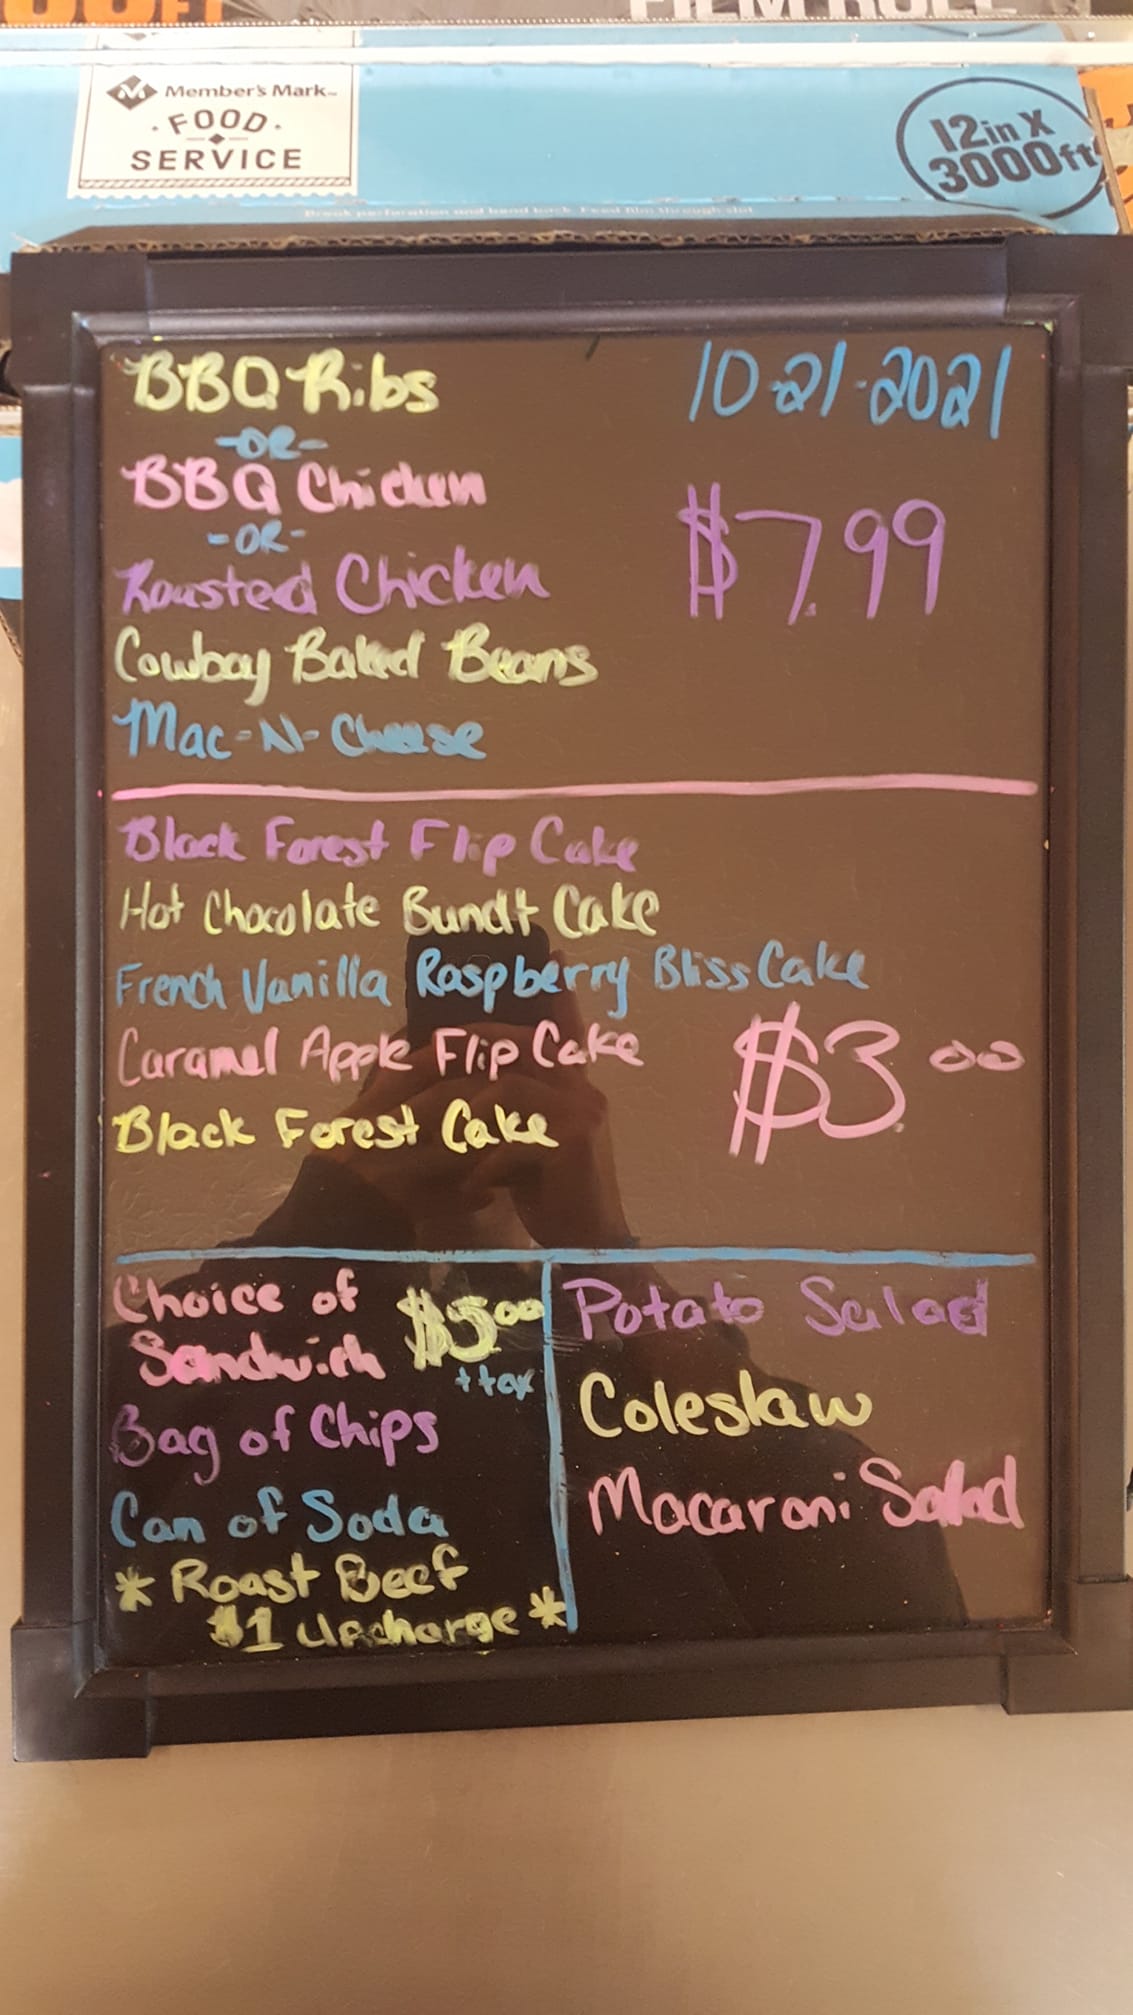 FILM ROLL
Member's Mark™
FOOD
SERVICE
12in X
3000ft
Break perforation and bend back. Feed film through slot.
BBQ Ribs
10-21-2021
-OR-
BBQ Chicken
$7.99
-OR-
Roasted Chicken
Cowboy Baked Beans
Mac-N-Cheese
Black Forest Flip Cake
Hot Chocolate Bundt Cake
French Vanilla Raspberry Bliss Cake
Caramel Apple Flip Cake
$3.00
Black Forest Cake
Choice of
Sandwich
$5.00
+tax
Bag of Chips
Can of Soda
* Roast Beef
$1 Upcharge *
Potato Salad
Coleslaw
Macaroni Salad